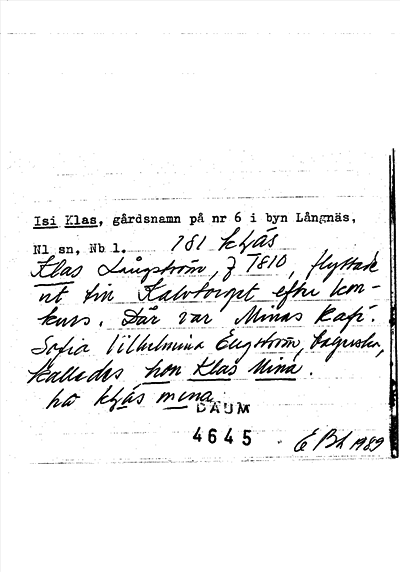 Isi Klas, gårdsnamn på nr 6 i byn Långnäs,
Nl sn, Nb l. 181 kḷas
Klas Långström, f 1810, flyttade
ut till Kalvtorget efter kon-
kurs. Där var Minas kafé.
Sofia Vilhelmina Engström, bagerska,
kallades hon Klas Mina.
ha kḷas mina
DAUM
4645
E Bl 1989